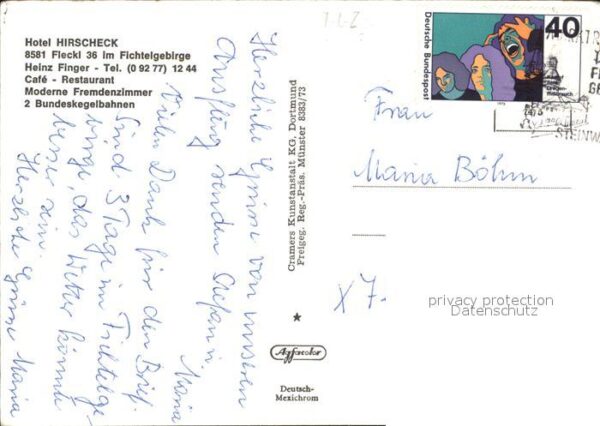 Hotel HIRSCHECK
8581 Fleckl 36 im Fichtelgebirge
Heinz Finger - Tel. (0 92 77) 12 44
Café - Restaurant
Moderne Fremdenzimmer
2 Bundeskegelbahnen
Herzliche Grüsse von unserem
Ausflug senden Stefan u.
Maria
Vielen Dank für den Brief.
Sind 3 Tage im Fichtelge-
birge, das Wetter könnte
besser sein.
Herzliche Grüsse Maria
Cramers Kunstanstalt KG, Dortmund
Freigeg. Reg.-Präs. Münster 8383/73
Agfacolor
Deutsch-
Mexichrom
Deutsche Bundespost
40
1975
STEINW
Frau
Maria Böhm
X 7.
privacy protection
Datenschutz